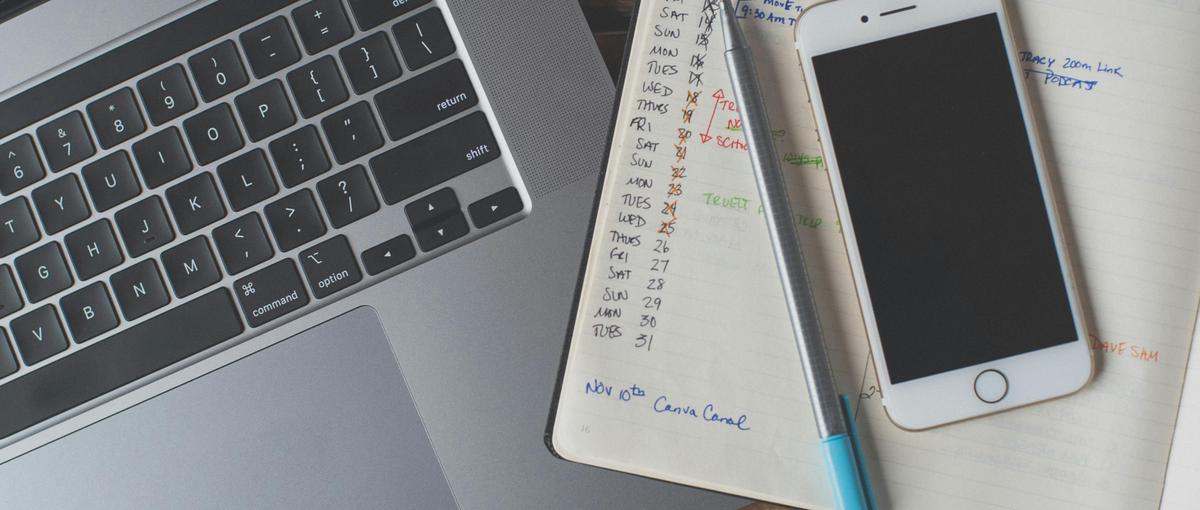 del
+
=
_
-
)
0
(
9
*
8
&
7
^
6
|
\
}
]
{
[
P
O
I
U
Y
T
return
"
'
:
;
L
K
J
H
G
shift
?
/
>
.
<
,
M
N
B
V
⌘
command
⌥
option
MOVE
9:30 AM
SAT 14
SUN 15
MON 16
TUES 17
WED 18
THURS 19
FRI 20
SAT 21
SUN 22
MON 23
TUES 24
WED 25
THURS 26
FRI 27
SAT 28
SUN 29
MON 30
TUES 31
TRUETT
TRIP
Nov 10th Canva Canal
16
TRACY Zoom Link
DAVE SAM